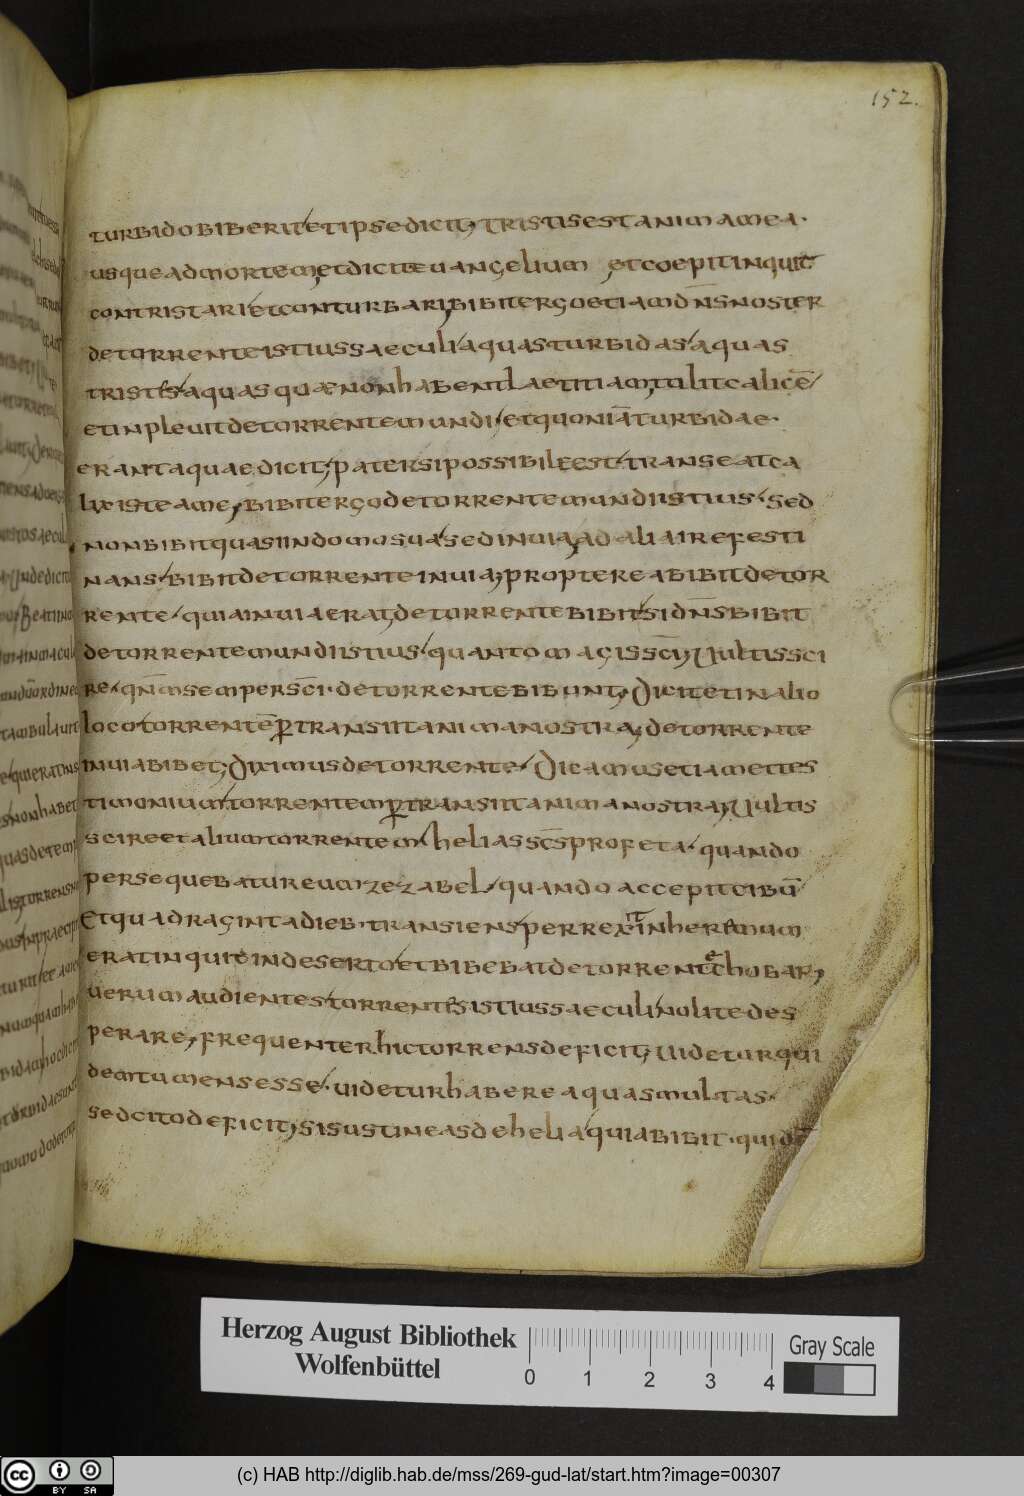 152.
turbido biberit et ipse dicit; tristis est anima mea·
usque ad mortem; et dicit euangelium et coepit inquit
contristari et conturbari; bibit ergo etiam dn̄s noster
de torrente istius saeculi aquas turbidas aquas
tristes aquas quae non habent laetitiam; tulit calicē
et inpleuit de torrente mundi et quoniā turbidae·
erant aquae dicit; pater si possibile est transeat ca
lix iste a me; bibit ergo de torrente mundi istius sed
non bibit quasi in domo sua sed in uia; ad alia ire festi
nans bibit de torrente in uia; propterea bibit de tor
rente quia in uia erat; de torrente bibit si dn̄s bibit
de torrente mundi istius quanto magis sc̄i; Uultis sci
re qnm̄ semper sc̄i· de torrente bibunt; Dicit et in alio
loco torrentē ꝑtransiit anima nostra; de torrente
in uia bibet; Diximus de torrente Dicamus et iam et tes
timonium torrentem ꝑtransiit anima nostra; Uultis
scire et alium torrentem helias sc̄s profeta· quando
persequebatur eum zezabel quando accepit cibū
Et quadraginta dieb· transiens perrexit in heremum
erat inquit in deserto et bibebat de torrente chobar;
uerum audientes torrentes istius saeculi nolite des
perare; frequenter hic torrens deficit; uidetur qui
dem tumens esse· uidetur habere aquas multas·
sed cito deficit; si sustineas de helia quia bibit· qui de
Herzog August Bibliothek
Wolfenbüttel
0 1 2 3 4
Gray Scale
cc BY SA
(c) HAB http://diglib.hab.de/mss/269-gud-lat/start.htm?image=00307